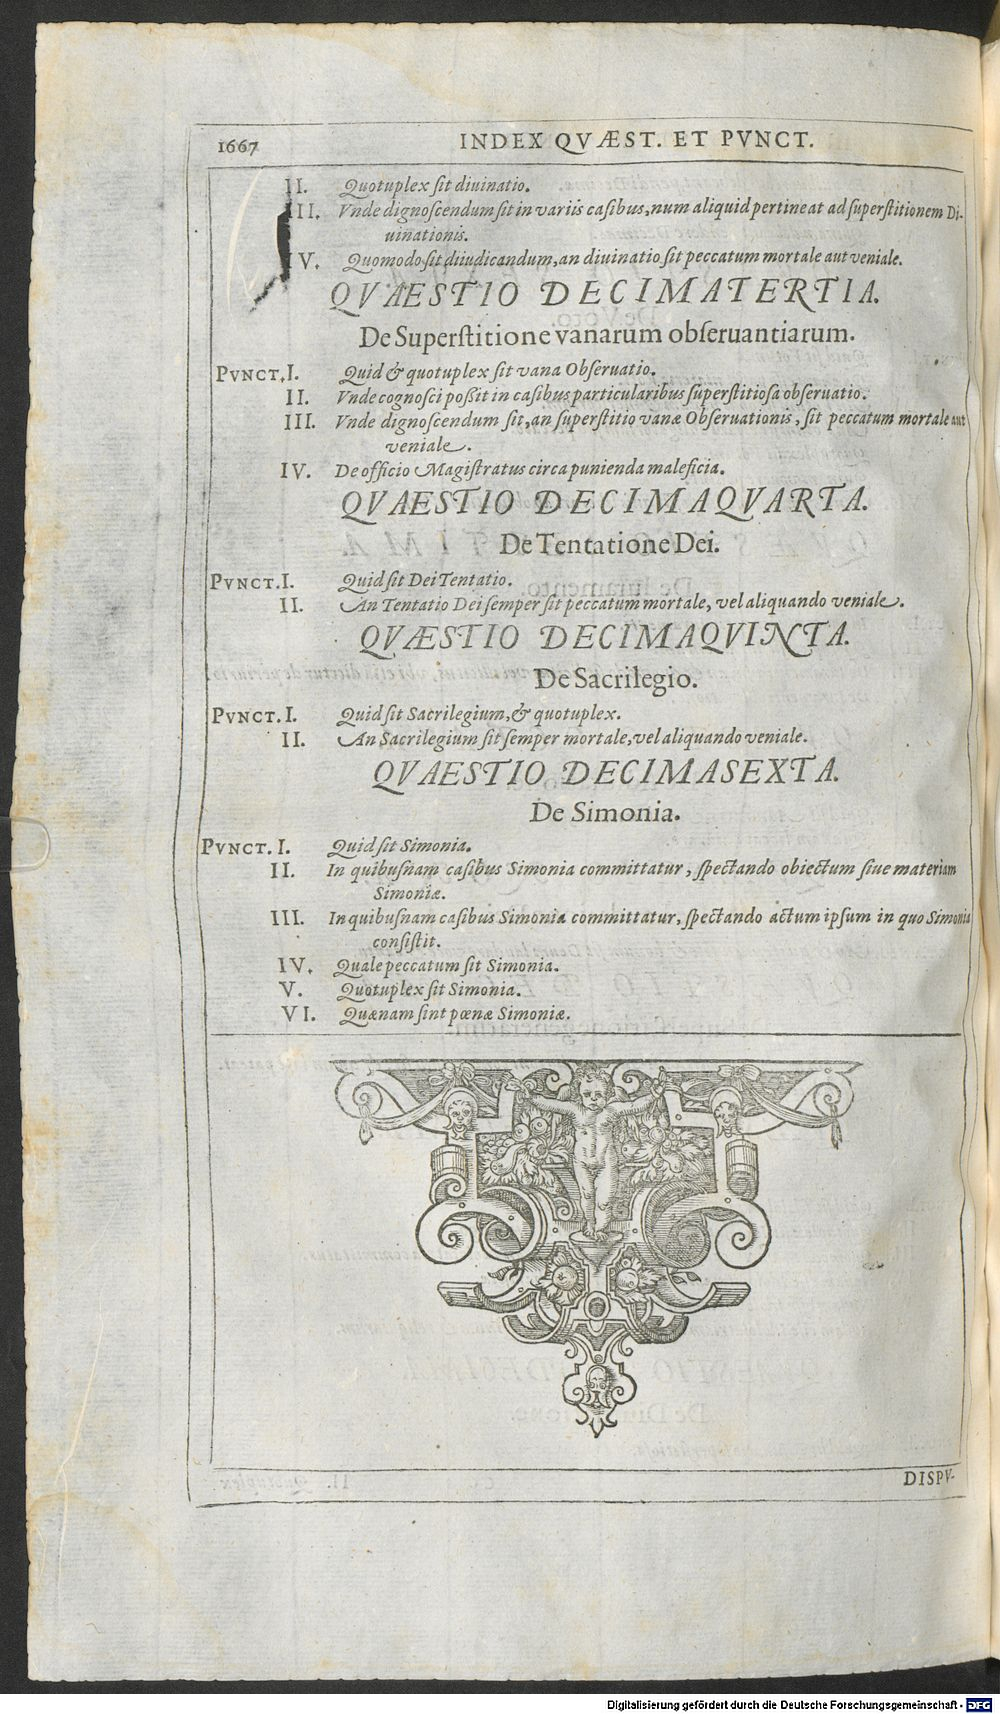 1667
INDEX QVÆST. ET PVNCT.
II. Quotuplex sit diuinatio.
III. Vnde dignoscendum sit in variis casibus, num aliquid pertineat ad superstitionem Di-
uinationis.
IV. Quomodo sit diiudicandum, an diuinatio sit peccatum mortale aut veniale.
QVAESTIO DECIMATERTIA.
De Superstitione vanarum obseruantiarum.
PVNCT. I. Quid & quotuplex sit vana Obseruatio.
II. Vnde cognosci poßit in casibus particularibus superstitiosa obseruatio.
III. Vnde dignoscendum sit, an superstitio vanæ Obseruationis, sit peccatum mortale aut
veniale.
IV. De officio Magistratus circa punienda maleficia.
QVAESTIO DECIMAQVARTA.
De Tentatione Dei.
PVNCT. I. Quid sit Dei Tentatio.
II. An Tentatio Dei semper sit peccatum mortale, vel aliquando veniale.
QVÆSTIO DECIMAQVINTA.
De Sacrilegio.
PVNCT. I. Quid sit Sacrilegium, & quotuplex.
II. An Sacrilegium sit semper mortale, vel aliquando veniale.
QVAESTIO DECIMASEXTA.
De Simonia.
PVNCT. I. Quid sit Simonia.
II. In quibusnam casibus Simonia committatur, spectando obiectum siue materiam
Simoniæ.
III. In quibusnam casibus Simonia committatur, spectando actum ipsum in quo Simonia
consistit.
IV. Quale peccatum sit Simonia.
V. Quotuplex sit Simonia.
VI. Quænam sint pœnæ Simoniæ.
DISPV-
Digitalisierung gefördert durch die Deutsche Forschungsgemeinschaft - DFG